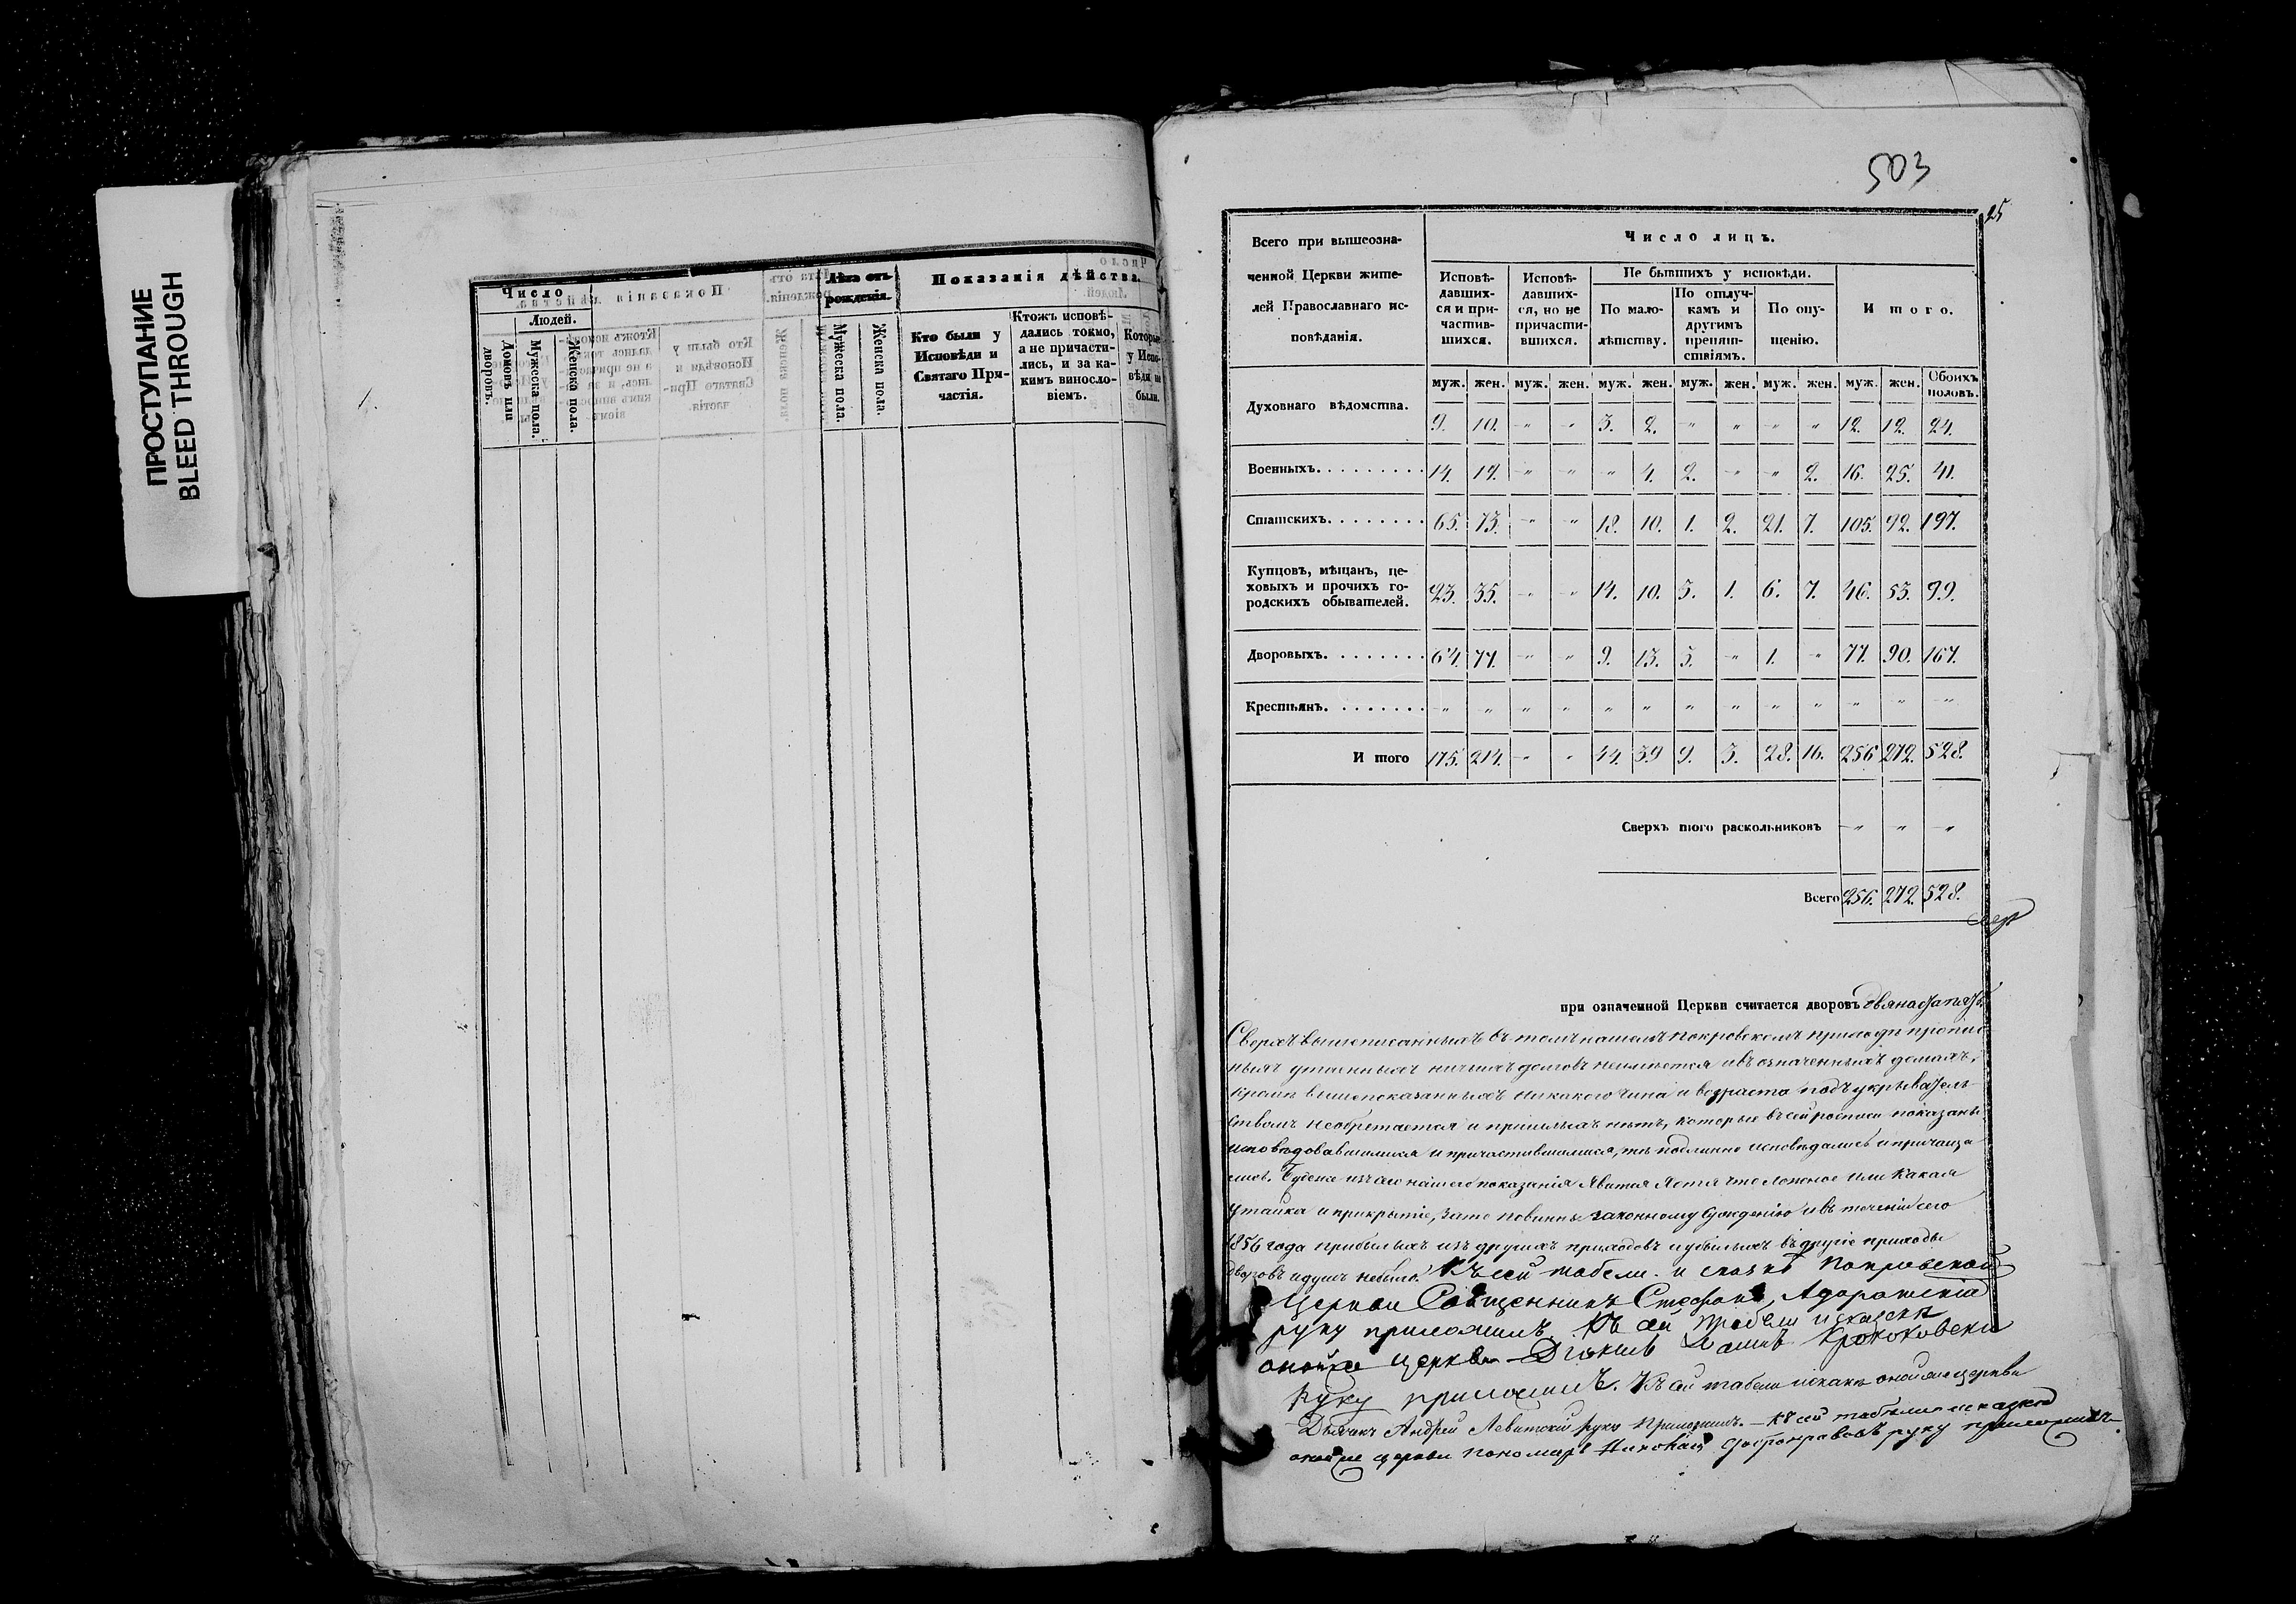 ПРОСТУПАНИЕ
BLEED THROUGH
Число
Людей.
Домовъ или дворовъ.
Мужеска пола.
Женска пола.
Лѣта отъ рожденія.
Мужеска пола.
Женска пола.
Показанія дѣйства.
Кто были у Исповѣди и Святаго Причастія.
Ктожъ исповѣ-
дались токмо,
а не причасти-
лись, и за ка-
кимъ винносло-
віемъ.
у Испо-
вѣди не
были.
503
25
Всего при вышеозна-
ченной Церкви жите-
лей Православнаго ис-
повѣданія.
Число лицъ.
Исповѣ-
давших-
ся и при-
частив-
шихся.
Исповѣ-
давших-
ся, но не
причасти-
вшихся.
Не бывшихъ у исповѣди.
По мало-
лѣтству.
По отлуч-
камъ и
другимъ
препят-
ствіямъ.
По опу-
щенію.
И того.
муж. жен. муж. жен. муж. жен. муж. жен. муж. жен. муж. жен. Обоихъ половъ.
Духовнаго вѣдомства. 9. 10. " " 3. 2. " " " " 12. 12. 24.
Военныхъ. 14. 19. " " " 4. 2. " " 2. 16. 25. 41.
Статскихъ. 65. 73. " " 18. 10. 1. 2. 21. 7. 105. 92. 197.
Купцовъ, мѣщанъ, це-
ховыхъ и прочихъ го-
родскихъ обывателей. 23. 35. " " 14. 10. 3. 1. 6. 7. 46. 53. 99.
Дворовыхъ. 64. 77. " " 9. 13. 3. " 1. " 77. 90. 167.
Крестьянъ. " " " " " " " " " " " " "
И того 175. 214. " " 44. 39 9. 3. 28. 16. 256 272. 528.
Сверхъ того раскольниковъ " " "
Всего 256. 272. 528.
при означенной Церкви считается дворовъ
Сверхъ вышеписанныхъ въ томъ нашемъ Покровскомъ приходѣ
утаенныхъ ничьихъ домовъ неимеется и въ означенныхъ домахъ,
кромѣ вышепоказанныхъ никакого чина и возраста подъ укрыватель-
ствомъ необретается и пришлыхъ нетъ, которые въ сей росписи показаны
исповедовавшимися и причастившимися, те подлинно исповѣдались и причаща
лись. нашего показанія явится что ложное или какая
утайка и прикрытіе, за то повинны законному сужденію и въ теченіи сего
1856 года прибылыхъ изъ другихъ приходовъ и убылыхъ въ другіе приходы
дворовъ и душъ небыло. Къ сей табели и сказкѣ Покровской
Церкви Священникъ Стефанъ
руку приложилъ. Къ сей табели и сказкѣ
оной же церкви
руку приложилъ. Къ сей табели и сказкѣ оной же церкви
Дьячекъ Андрей Левитскій руку приложилъ. – Къ сей табели и сказкѣ
оной же церкви пономарь Николай Добронравовъ руку приложилъ